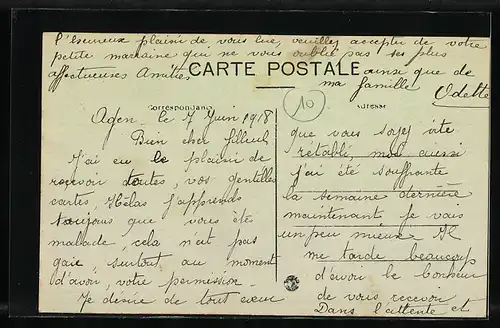 Agen le 7 Juin 1918
Bien cher filleul
J'ai eu le plaisir de
recevoir toutes, vos gentilles
cartes, Hélas j'apprends
toujours que vous ète
malade, cela n'est pas
gaie, surtout au moment
d'avoir, votre permission.
Je désire de tout coeur
que vous soyez vite
rétabli, moi aussi
j'ai été souffrante
la semaine dernière
maintenant je vais
un peu mieux. Il
me tarde beaucoup
d'avoir le bonheur
de vous recevoir
Dans l'attente et
l'heureux plaisir de vous lire, veuillez accepter de votre
petite marraine qui ne vous oublie pas ses plus
affectueuses Amitiés ainsi que de
ma famille
Odette
CARTE POSTALE
Correspondance
Adresse
10